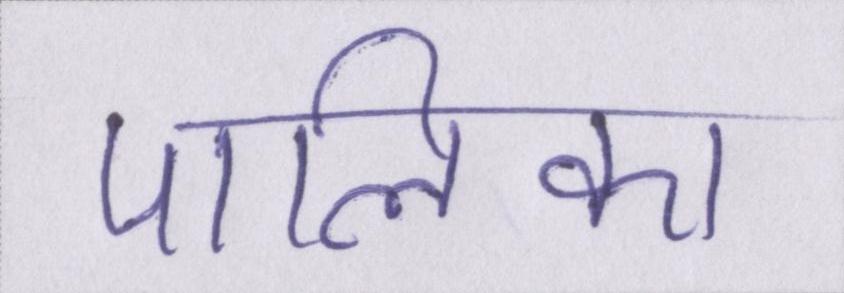 पालिका